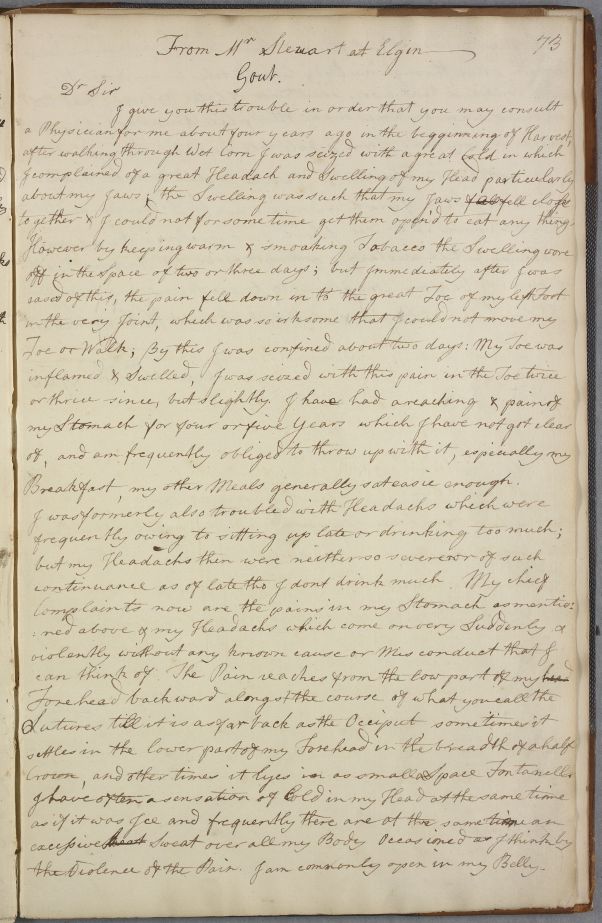 73
From Mr Steuart at Elgin
Gout.
Dr Sir
I give you this trouble in order that you may consult
a Physician for me about four years ago in the begginning of Harvest,
after walking through Wet Corn I was seized with a great Cold in which
I complained of a great Headach and Swelling of my Head particularly
about my Jaws, the Swelling was such that my Jaws fell close
together & I could not for some time get them open'd to eat any thing.
However by keeping warm & smoaking Tobacco the Swelling wore
off in the Space of two or three days; but Immediately after I was
eased of this, the pain fell down into the great Toe of my left Foot
in the very Joint, which was so irksome that I could not move my
Toe or Walk; By this I was confined about two days: My Toe was
inflamed & Swelled, I was seized with this pain in the Toe twice
or thrice since, but slightly. I have had a reaching & pain of
my Stomach for four or five Years which I have not got clear
of, and am frequently obliged to throw up with it, especially my
Breakfast, my other Meals generally sat easie enough.
I was formerly also troubled with Headachs which were
frequently owing to sitting up late or drinking too much;
but my Headachs then were neither so severe or of such
continuance as of late tho I dont drink much. My chief
Complaints now are the pains in my Stomach as mentio:
:ned above & my Headachs which come on very Suddenly &
violently without any known cause or Mis conduct that I
can think of. The Pain reaches from the low part of my
Forehead backward alongst the course of what you call the
Sutures till it is as far back as the Occiput sometimes it
settles in the lower part of my Forehead in the breadth of a half
Crown, and other times it lyes in as small a Space Fontanella
I have often a sensation of Cold in my Head at the same time
as if it was Ice and frequently there are at the same time an
excessive Sweat over all my Body Occasioned as I think by
the Violence of the Pain. I am commonly open in my Belly.